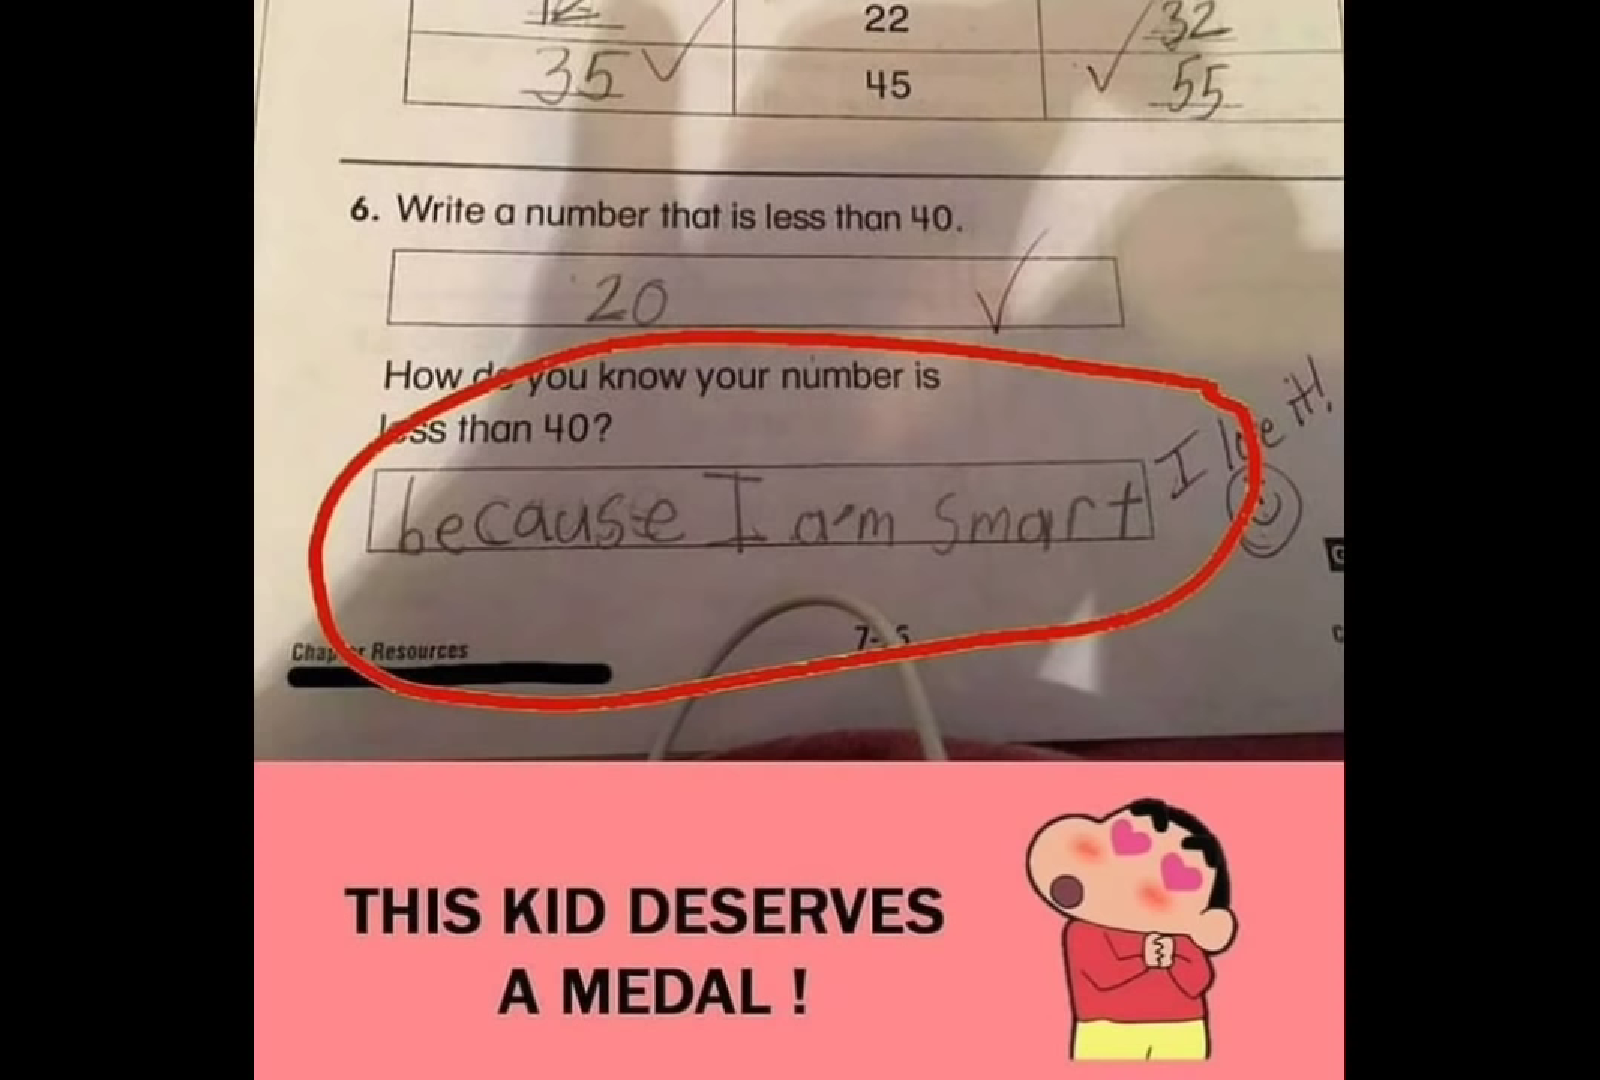 12
22
32
35
45
55
6. Write a number that is less than 40.
20
How do you know your number is
less than 40?
because I am smart
I love it!
Chapter Resources
THIS KID DESERVES
A MEDAL !